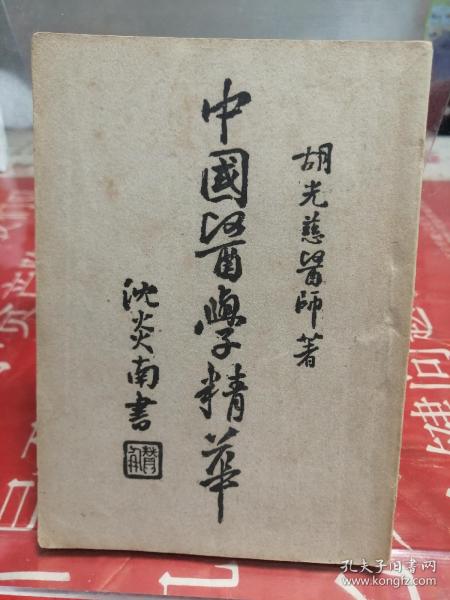 胡光慈醫師著
中國醫學精華
沈炎南書
孔夫子旧书网
www.kongfz.com